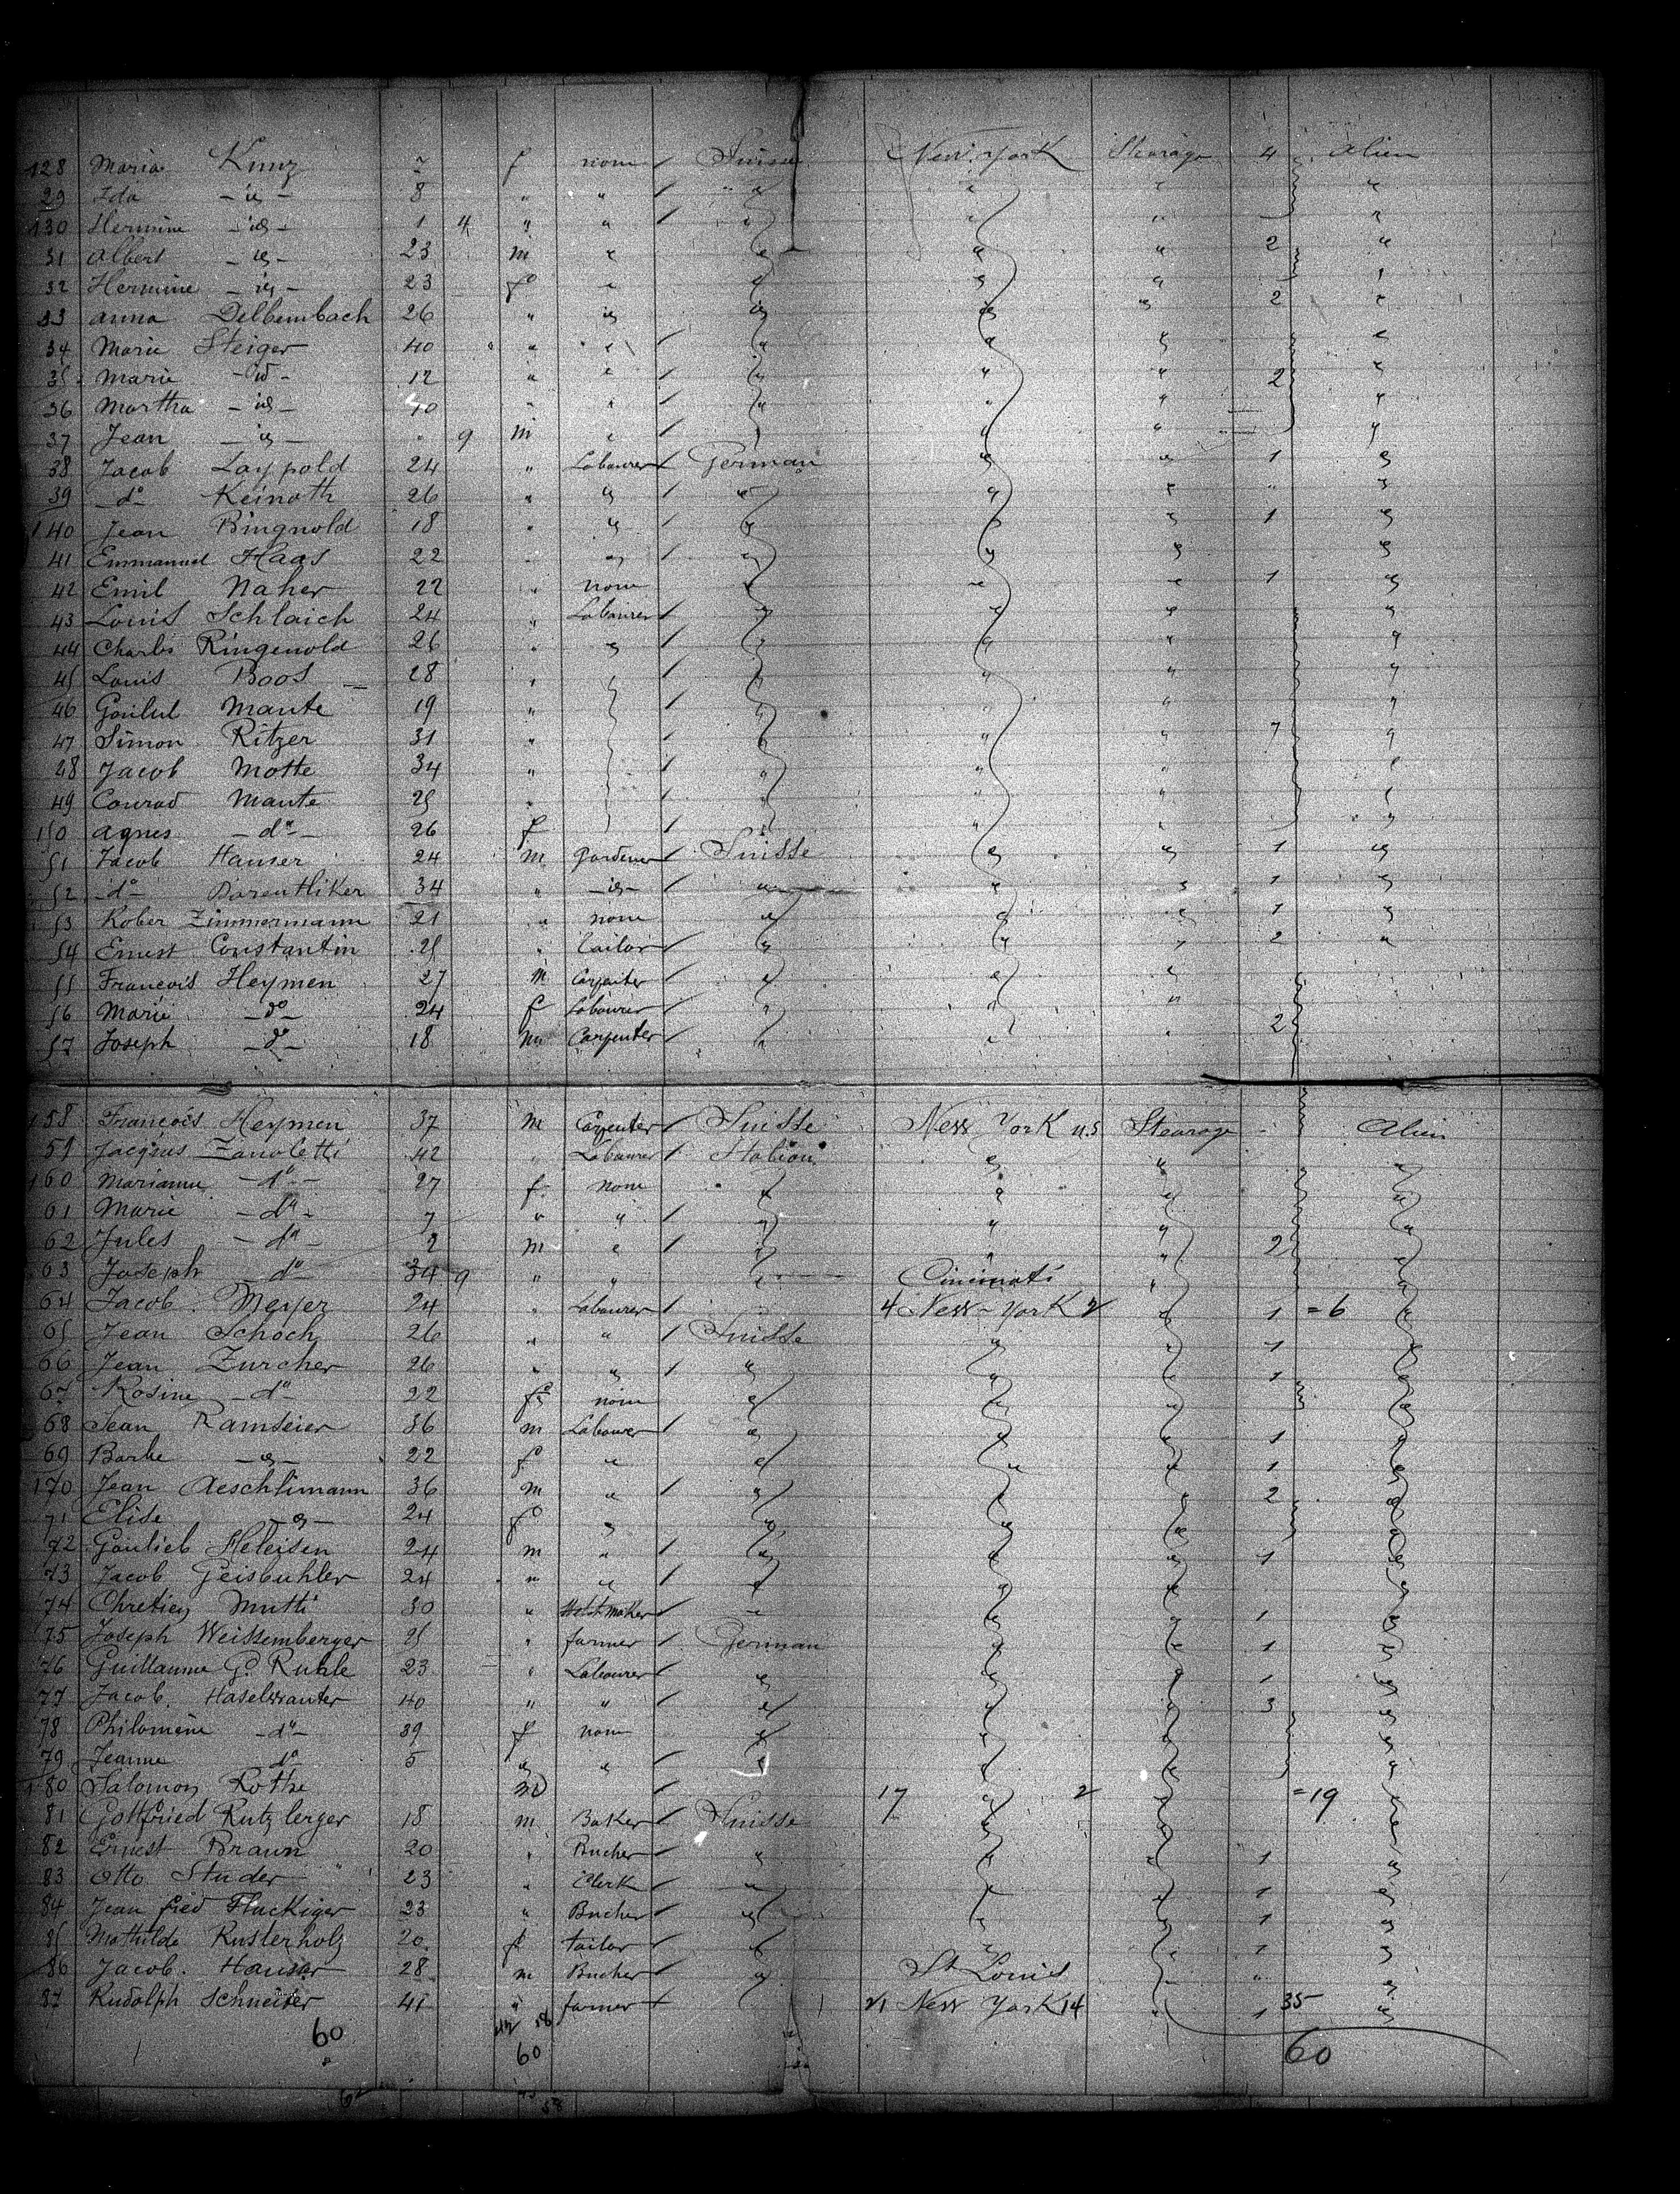 128 Maria Kunz f none Suisse New York Stearage 4 Alien
29 Ida -id- 8 " "
130 Hermine -id- 1 4 " "
31 Albert -id- 23 m " 2
32 Hermine -id- 23 f "
33 Anna Delbembach 26 " id 2
34 Marie Steiger 40 " "
35 Marie -id- 12 " " 2
36 Martha -id- 10 " "
37 Jean -id- " 9 m "
38 Jacob Laypold 24 " Labourer German 1
39 -do- Keinath 26 " "
140 Jean Bingnold 18 " " 1
41 Emmanuel Haas 22 " "
42 Emil Naher 22 " none 1
43 Louis Schlaich 24 " Labourer
44 Charles Ringenold 26 " "
45 Louis Boos 28 "
46 Mante 19 "
47 Simon Ritzer 31 " 7
48 Jacob Motte 34 "
49 Conrad Mante 25 "
150 Agnes -do- 26 f
51 Jacob Hauser 24 m Gardener Suisse 1
52 -do- Darentliker 34 " -id- 1
53 Rober Zimmermann 21 " none 1
54 Ernest Constantin 25 " tailor 2
55 Francois Heymen 27 m Carpenter
56 Marie -do- 24 f Labourer 2
57 Joseph -do- 18 m Carpenter
158 Francois Heymen 37 m Carpenter Suisse New York U.S Stearage Alien
59 Jacques Zanoletti 42 " Labourer Italian
160 Marianne -do- 27 f none
61 Marie -do- 7 " "
62 Jules -do- 2 m " 2
63 Joseph -do- 34 9 " " Cincinati
64 Jacob Meyer 24 " Labourer 4 New-York 2 1 =6
65 Jean Schoch 26 " " Suisse 1
66 Jean Zurcher 26 " " 1
67 Rosine -do- 22 f none
68 Jean Ramseier 36 m Labourer 1
69 Barbe -id- 22 f " 1
170 Jean Aeschlimann 36 m " 2
71 Elise -id- 24 f "
72 Gottlieb Heleisen 24 m " 1
73 Jacob Geisbuhler 24 " "
74 Chretien Mutti 30 " 1
75 Joseph Weissemberger 25 " farmer German 1
76 Guillaume Gd Ruhle 23 " Labourer 1
77 Jacob Haselwanter 40 " " 3
78 Philomene -do- 39 f none
79 Jeanne do 5 " "
180 Salomon Rothe m 17 2 =19
81 Gottfried Rutzlerger 18 m Baker Suisse
82 Ernest Braun 20 " Bucher 1
83 Otto Studer 23 " Clerk 1
84 Jean fred Fluckiger 23 " Bucher 1
85 Mathilde Rusterholz 20 f tailor 1
86 Jacob Hauser 28 m Bucher St Louis "
87 Rudolph Schneiter 41 " farmer 21 New York 14 1 35
60 60 60